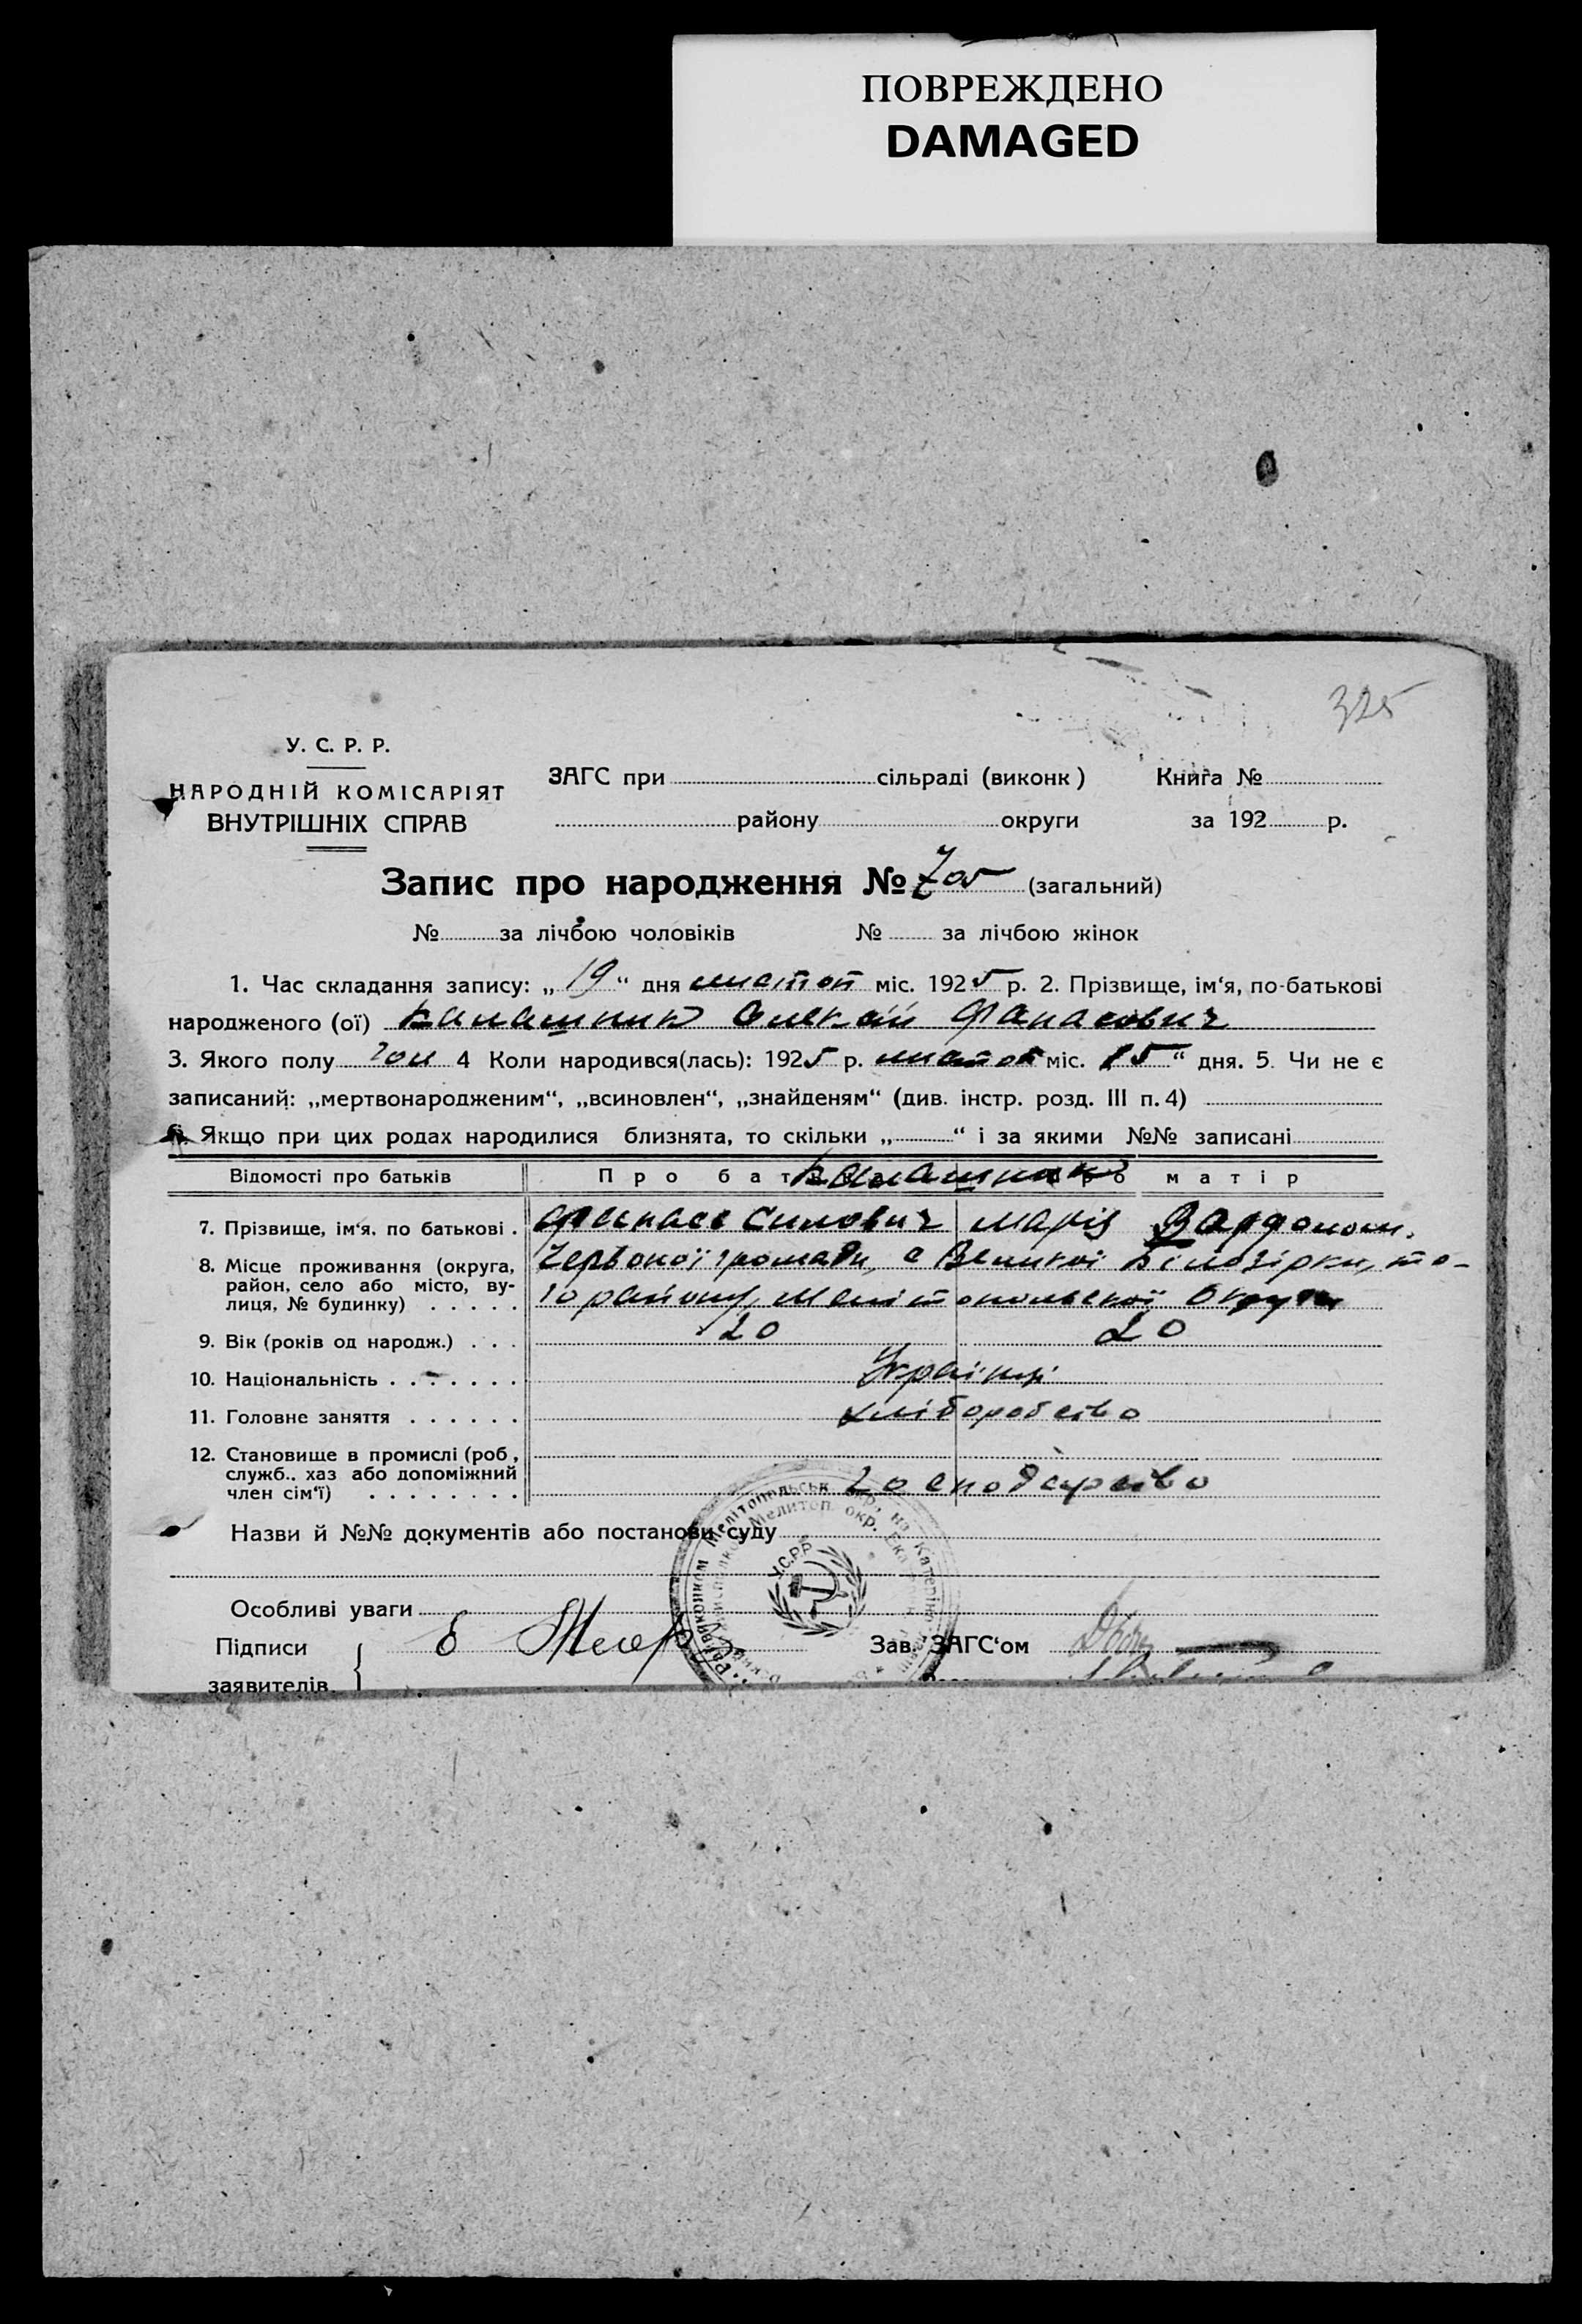 ПОВРЕЖДЕНО
DAMAGED
325
У. С. Р. Р.
НАРОДНІЙ КОМІСАРІЯТ
ВНУТРІШНІХ СПРАВ
ЗАГС при сільраді (виконк) Книга №
району округи за 192 р.
Запис про народження № 705 (загальний)
№ за лічбою чоловіків № за лічбою жінок
1. Час складання запису: „ 19 “ дня листоп міс. 1925 р. 2. Прізвище, ім‘я, по-батькові
народженого (ої) Калашник Олексій Фанасович
3. Якого полу чол 4 Коли народився(лась): 1925 р. листоп міс. 15 “ дня. 5. Чи не є
записаний: „мертвонародженим“, „всиновлен“, „знайденям“ (див. інстр. розд. III п. 4)
6. Якщо при цих родах народилися близнята, то скільки „ “ і за якими №№ записані
Відомості про батьків Про батька Про матір
Калашники
7. Прізвище, ім‘я, по батькові . Фанасе Силович Марія
8. Місце проживання (округа, Червоної громади, с Великої Білозірки, то-
район, село або місто, ву-
лиця, № будинку) . . . . . го району, Мелітопольської Округи
9. Вік (років од народж.) . . . 20 20
10. Національність . . . . . . . Українці
11. Головне заняття . . . . . . хліборобство
12. Становище в промислі (роб,
служб.. хаз або допоміжний
член сім‘ї) . . . . . . . . господарство
Назви й №№ документів або постанови суду
У.С.Р.Р.
Особливі уваги
Підписи Зав. ЗАГС‘ом
заявителів